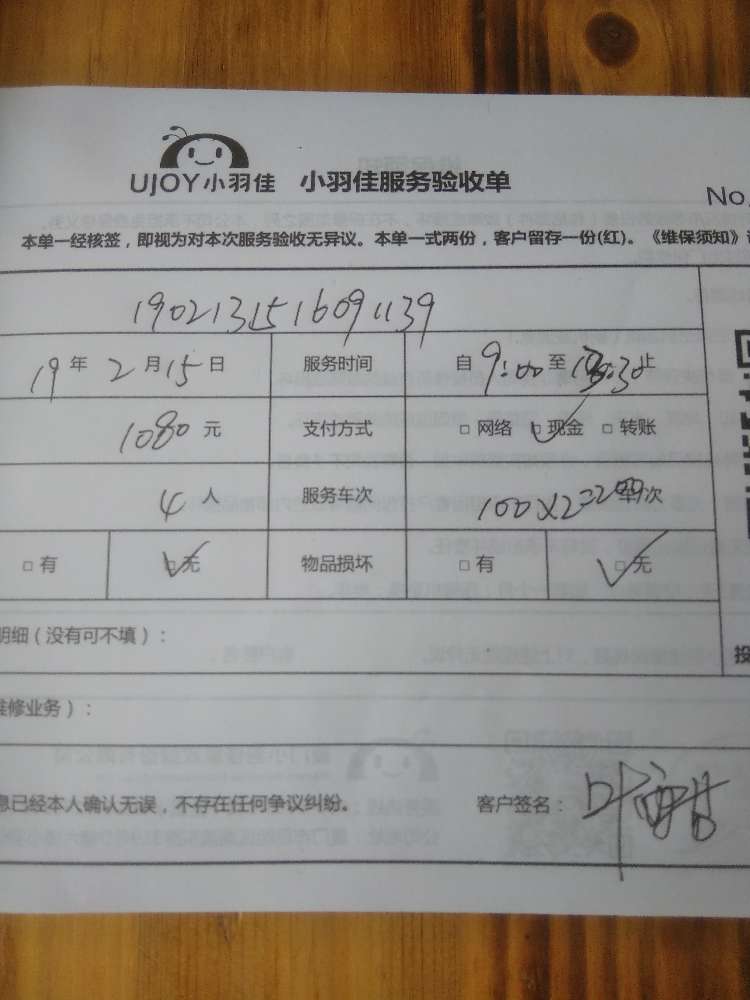 UJOY小羽佳 小羽佳服务验收单
No.
本单一经核签，即视为对本次服务验收无异议。本单一式两份，客户留存一份(红)。《维保须知》
1902131516091139
19年2月15日 服务时间 自9:00至 :30止
1080元 支付方式 □网络 □现金 □转账
4人 服务车次 100×2=200车次
□有 □无 物品损坏 □有 □无
明细（没有可不填）：
维修业务）：
息已经本人确认无误，不存在任何争议纠纷。 客户签名：叶
投